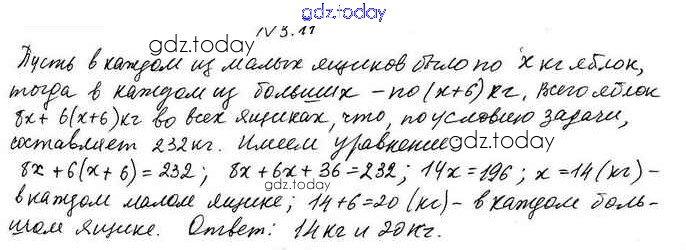 gdz.today
№ 3.11
gdz.today
Пусть в каждом из малых ящиков было по x кг яблок,
gdz.today
тогда в каждом из больших – по (x+6) кг. Всего яблок
8x + 6(x+6) кг во всех ящиках, что, по условию задачи,
составляет 232 кг. Имеем уравнение
gdz.today
8x + 6(x+6) = 232; 8x + 6x + 36 = 232; 14x = 196; x = 14 (кг) –
gdz.today
в каждом малом ящике; 14 + 6 = 20 (кг) – в каждом боль-
шом ящике. Ответ: 14 кг и 20 кг.